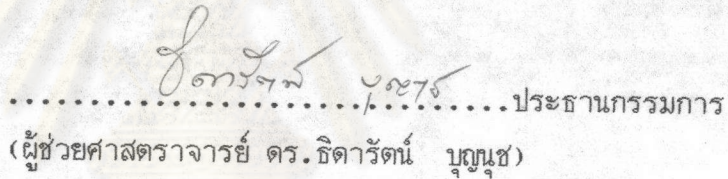 ธิดารัตน์ บุญนุช
....................................ประธานกรรมการ
(ผู้ช่วยศาสตราจารย์ ดร.ธิดารัตน์ บุญนุช)